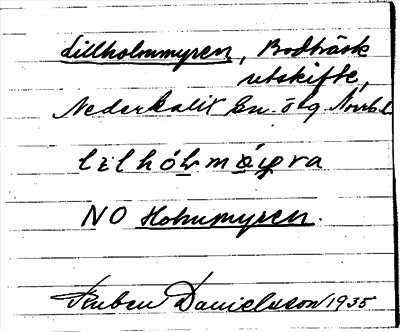 Lillholmmyren, Bodträsk
utskifte,
Nederkalix sn. o tg Norrb. l.
NO Holmmyren.
Ruben Danielsson 1935